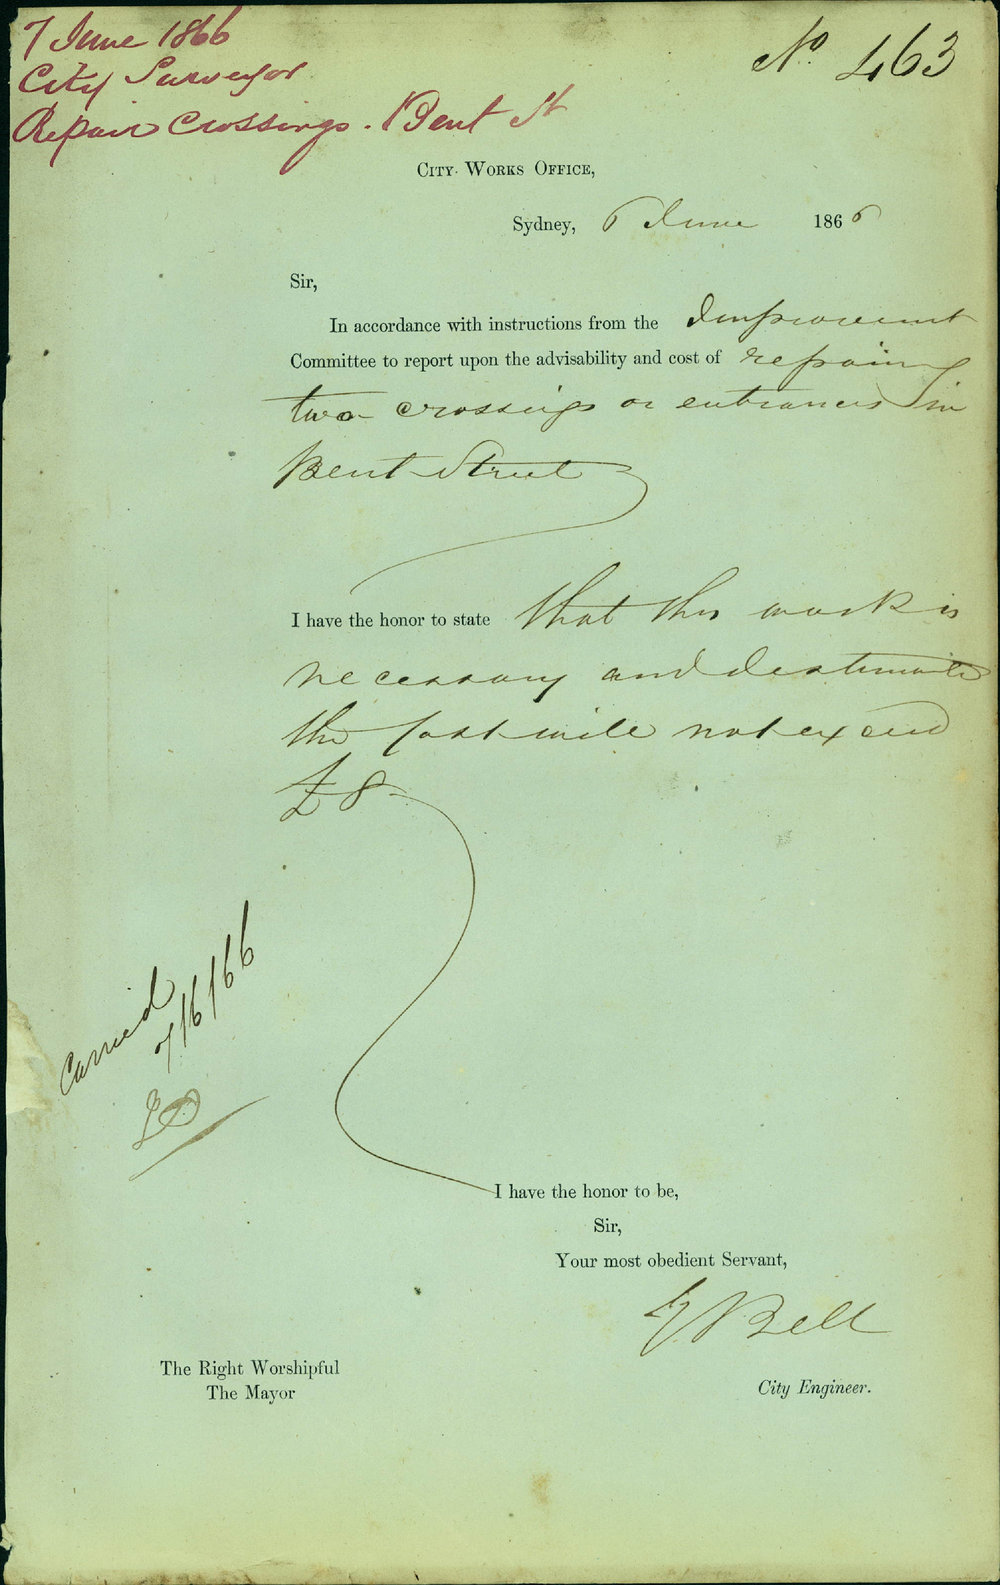 7 June 1866
City Surveyor
Repair Crossings. Bent St
No. 463
City Works Office,
Sydney, 6 June 1866
Sir,
In accordance with instructions from the Improvement
Committee to report upon the advisability and cost of repairing
two crossings or entrances in
Bent Street
I have the honor to state that this work is
necessary and I estimate
the cost will not exceed
£8
Carried
7/6/66
I have the honor to be,
Sir,
Your most obedient Servant,
E Bell
City Engineer.
The Right Worshipful
The Mayor